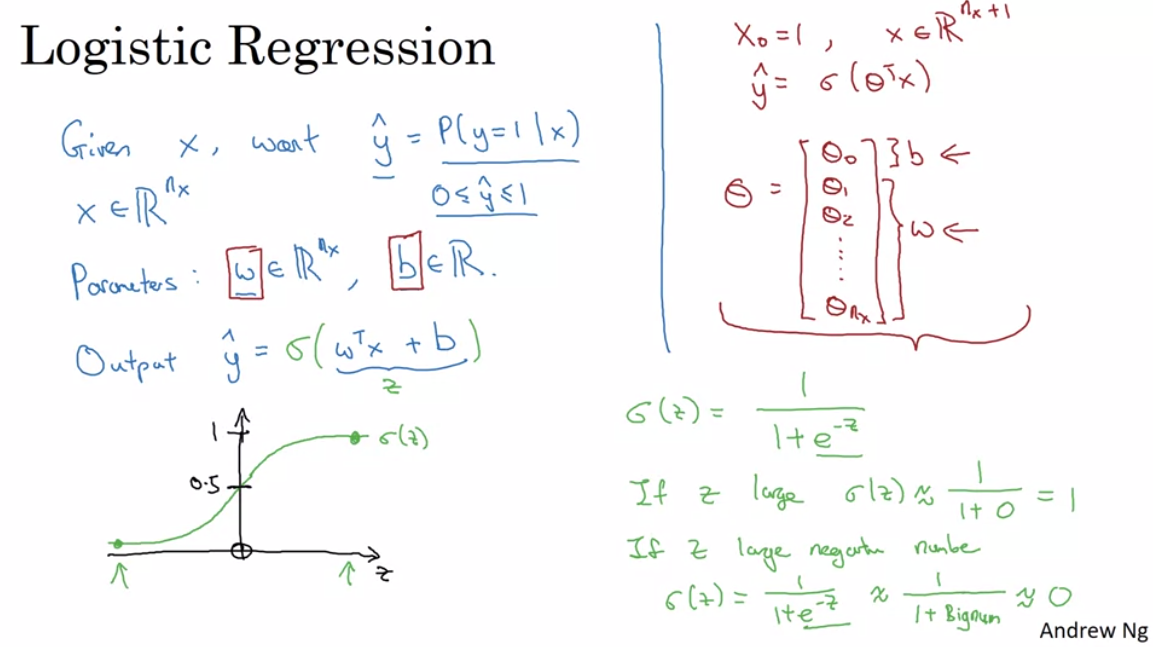 Logistic Regression
Given x, want ŷ = P(y=1|x)
x ∈ ℝ^{n_x}
0 ≤ ŷ ≤ 1
Parameters: w ∈ ℝ^{n_x}, b ∈ ℝ.
Output ŷ = σ(wᵀx + b)
z
1
σ(z)
0.5
z
X₀ = 1, x ∈ ℝ^{n_x+1}
ŷ = σ(θᵀx)
θ = [θ₀ } b ←
θ₁
θ₂
⋮
θ_{n_x}] } w ←
σ(z) = 1/(1+e^{-z})
If z large σ(z) ≈ 1/(1+0) = 1
If z large negative number
σ(z) = 1/(1+e^{-z}) ≈ 1/(1+Bignum) ≈ 0
Andrew Ng